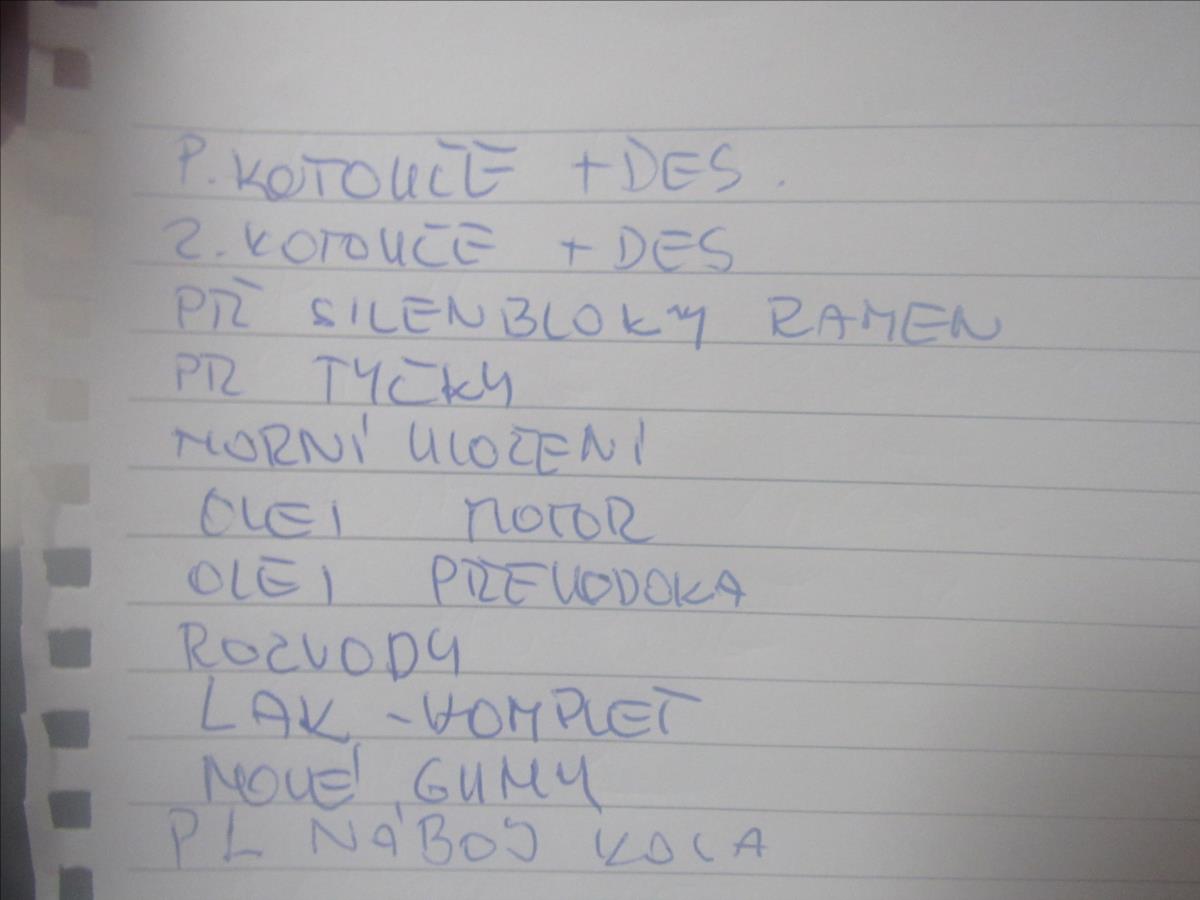 P. KOTOUČE + DES.
Z. KOTOUČE + DES
PŘ SILENBLOKY RAMEN
PŘ TYČKY
HORNÍ ULOZENÍ
OLEJ MOTOR
OLEJ PŘEVODOKA
ROZVODY
LAK - KOMPLET
NOVÉ GUMY
PL NÁBOJ KOLA